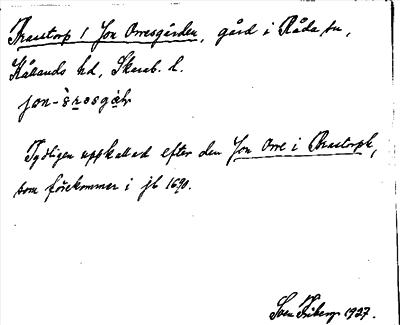 Prastorp 1 Jon Orresgården, gård i Råda sn,
Kållands hd, Skarab. l.
jon-
Tydligen uppkallad efter den Jon Orre i Prastorph,
som förekommer i jb 1690.
Sven Friberg 1927.